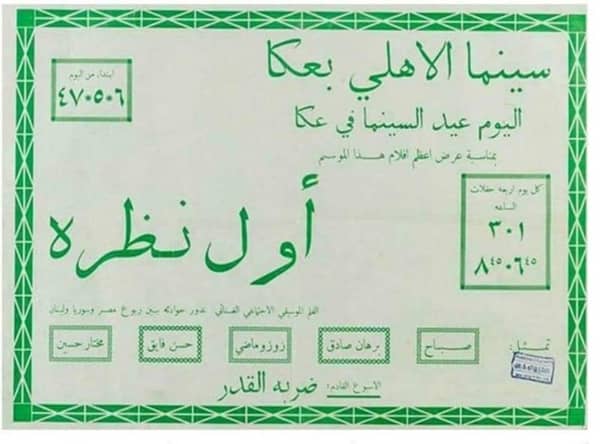 سينما الاهلي بعكا
ابتداء من اليوم
٤٧٠٥٠٦
اليوم عيد السينما في عكا
بمناسبة عرض اعظم افلام هذا الموسم
كل يوم اربعه حفلات
الساعه
٣٠١
٨٤٥٠٦٤٥
أول نظره
الفلم الموسيقي الاجتماعي الغنائي تدور حوادثه بين ربوع مصر وسوريا ولبنان
تمثيل:
صباح
برهان صادق
زوزو ماضي
حسن فايق
مختار حسين
الاسبوع القادم: ضربه القدر